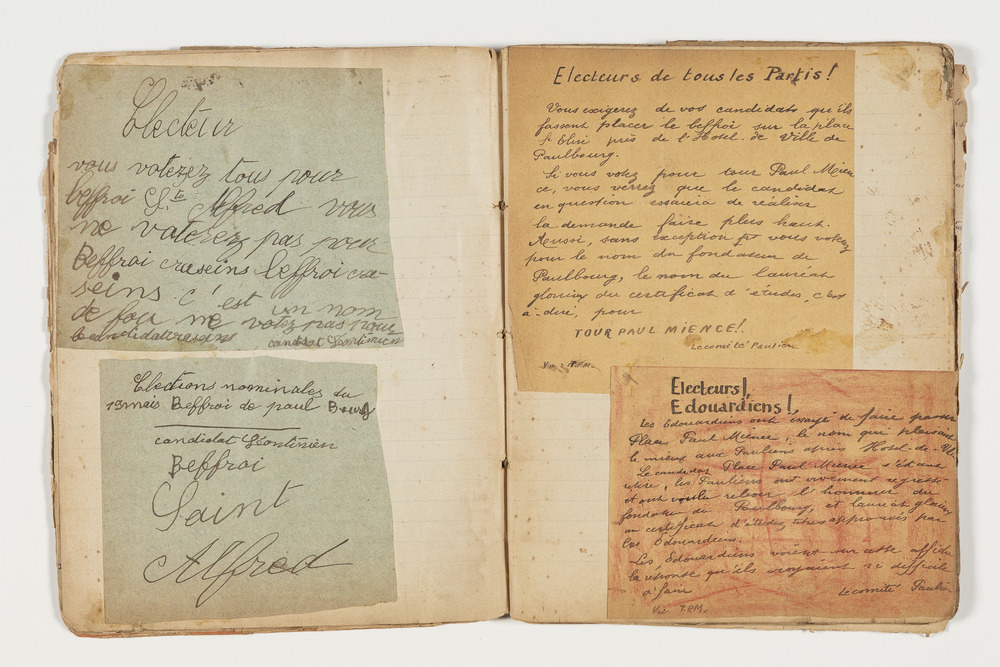 Electeur
vous voterez tous pour
beffroi St Alfred vous
ne voterez pas pour
Beffroi craseins beffroi cra-
seins c'est un nom
de fou ne votez pas pour
candidat Léontinien
Elections nominales du
15 mais Beffroi de paul Bourg
candidat Léontinien
Beffroi
Saint
Alfred
Electeurs de tous les Partis!
Vous exigerez de vos candidats qu'ils
fassent placer le beffroi sur la place
St Elise près de l'Hotel de Ville de
Paulbourg.
Si vous votez pour tour Paul Mien
ce, vous verrez que le candidat
en question essaiera de réaliser
la demande faite plus haut.
Aussi, sans exception vous votez
pour le nom du fondateur de
Paulbourg, le nom du lauréat
glorieux du certificat d'études, c'est
à-dire, pour
TOUR PAUL MIENCE!
Le comité Paulien
Vu: T.P.M.
Electeurs!,
Edouardiens!,
Les Edouardiens ont essayé de faire passer
Place Paul Mience, le nom qui plaisait
le mieux aux Pauliens après Hotel-de-Ville
Le candidat Place Paul Mience s'étant
retiré, les Pauliens ont vivement regretté
et ont voulu retenir l'honneur du
fondateur de Paulbourg, et lauréat glorieux
au certificat d'études, très approuvés par
les Edouardiens.
Les Edouardiens voient sur cette affiche
la réponse qu'ils croyaient si difficile
à faire
Le comité Paulien
Vu: T.P.M.